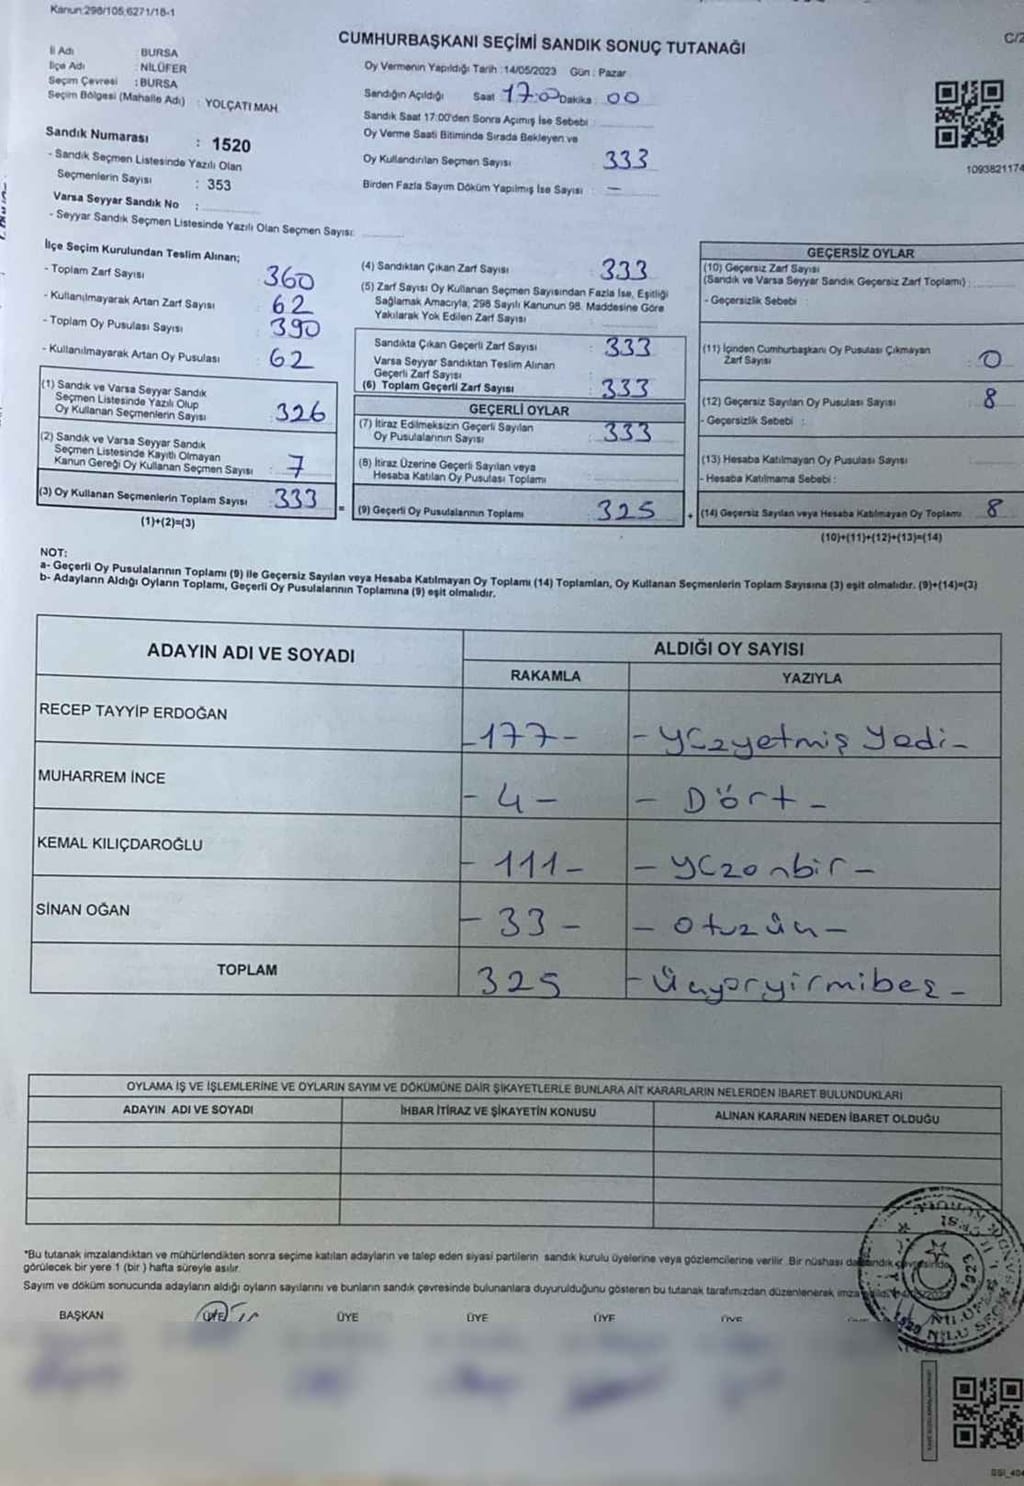 Kanun:298/105,6271/18-1
CUMHURBAŞKANI SEÇİMİ SANDIK SONUÇ TUTANAĞI
C/2
İl Adı : BURSA
İlçe Adı : NİLÜFER
Seçim Çevresi : BURSA
Seçim Bölgesi (Mahalle Adı) : YOLÇATI MAH.
Oy Vermenin Yapıldığı Tarih :14/05/2023 Gün : Pazar
Sandığın Açıldığı Saat 17:00 Dakika : 00
Sandık Saat 17:00'den Sonra Açımış İse Sebebi :
Oy Verme Saati Bitiminde Sırada Bekleyen ve
Oy Kullandırılan Seçmen Sayısı : 333
Birden Fazla Sayım Döküm Yapılmış İse Sayısı : —
1093821174
Sandık Numarası : 1520
- Sandık Seçmen Listesinde Yazılı Olan
Seçmenlerin Sayısı : 353
Varsa Seyyar Sandık No :
- Seyyar Sandık Seçmen Listesinde Yazılı Olan Seçmen Sayısı:
İlçe Seçim Kurulundan Teslim Alınan;
- Toplam Zarf Sayısı : 360
- Kullanılmayarak Artan Zarf Sayısı : 62
- Toplam Oy Pusulası Sayısı : 390
- Kullanılmayarak Artan Oy Pusulası : 62
(1) Sandık ve Varsa Seyyar Sandık
Seçmen Listesinde Yazılı Olup
Oy Kullanan Seçmenlerin Sayısı : 326
(2) Sandık ve Varsa Seyyar Sandık
Seçmen Listesinde Kayıtlı Olmayan
Kanun Gereği Oy Kullanan Seçmen Sayısı : 7
(3) Oy Kullanan Seçmenlerin Toplam Sayısı : 333
(1)+(2)=(3)
=
(4) Sandıktan Çıkan Zarf Sayısı : 333
(5) Zarf Sayısı Oy Kullanan Seçmen Sayısından Fazla İse, Eşitliği
Sağlamak Amacıyla, 298 Sayılı Kanunun 98. Maddesine Göre
Yakılarak Yok Edilen Zarf Sayısı :
Sandıkta Çıkan Geçerli Zarf Sayısı : 333
Varsa Seyyar Sandıktan Teslim Alınan
Geçerli Zarf Sayısı :
(6) Toplam Geçerli Zarf Sayısı : 333
GEÇERLİ OYLAR
(7) İtiraz Edilmeksizin Geçerli Sayılan
Oy Pusulalarının Sayısı : 333
(8) İtiraz Üzerine Geçerli Sayılan veya
Hesaba Katılan Oy Pusulası Toplamı :
(9) Geçerli Oy Pusulalarının Toplamı : 325
+
GEÇERSİZ OYLAR
(10) Geçersiz Zarf Sayısı
(Sandık ve Varsa Seyyar Sandık Geçersiz Zarf Toplamı) :
- Geçersizlik Sebebi :
(11) İçinden Cumhurbaşkanı Oy Pusulası Çıkmayan
Zarf Sayısı : 0
(12) Geçersiz Sayılan Oy Pusulası Sayısı : 8
- Geçersizlik Sebebi :
(13) Hesaba Katılmayan Oy Pusulası Sayısı :
- Hesaba Katılmama Sebebi :
(14) Geçersiz Sayılan veya Hesaba Katılmayan Oy Toplamı : 8
(10)+(11)+(12)+(13)=(14)
NOT:
a- Geçerli Oy Pusulalarının Toplamı (9) ile Geçersiz Sayılan veya Hesaba Katılmayan Oy Toplamı (14) Toplamları, Oy Kullanan Seçmenlerin Toplam Sayısına (3) eşit olmalıdır. (9)+(14)=(3)
b- Adayların Aldığı Oyların Toplamı, Geçerli Oy Pusulalarının Toplamına (9) eşit olmalıdır.
ADAYIN ADI VE SOYADI ALDIĞI OY SAYISI
RAKAMLA YAZIYLA
RECEP TAYYİP ERDOĞAN -177- - Yüzyetmiş Yedi -
MUHARREM İNCE - 4 - - Dört -
KEMAL KILIÇDAROĞLU - 111 - - Yüzonbir -
SİNAN OĞAN - 33 - - Otuzüç -
TOPLAM 325 - Üçyüzyirmibeş -
OYLAMA İŞ VE İŞLEMLERİNE VE OYLARIN SAYIM VE DÖKÜMÜNE DAİR ŞİKAYETLERLE BUNLARA AİT KARARLARIN NELERDEN İBARET BULUNDUKLARI
ADAYIN ADI VE SOYADI İHBAR İTİRAZ VE ŞİKAYETİN KONUSU ALINAN KARARIN NEDEN İBARET OLDUĞU
*Bu tutanak imzalandıktan ve mühürlendikten sonra seçime katılan adayların ve talep eden siyasi partilerin sandık kurulu üyelerine veya gözlemcilerine verilir. Bir nüshası da sandık çevresinde
görülecek bir yere 1 (bir ) hafta süreyle asılır.
Sayım ve döküm sonucunda adayların aldığı oyların sayılarını ve bunların sandık çevresinde bulunanlara duyurulduğunu gösteren bu tutanak tarafımızdan düzenlenerek imza
BAŞKAN ÜYE ÜYE ÜYE ÜYE ÜYE
1923
1520